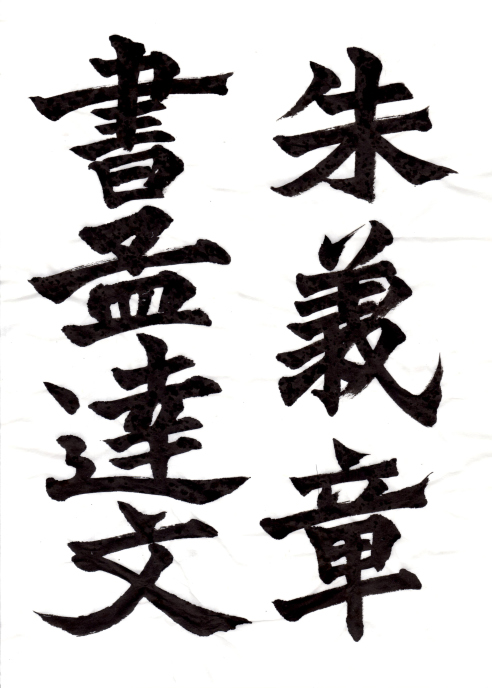 朱義章
書孟達文